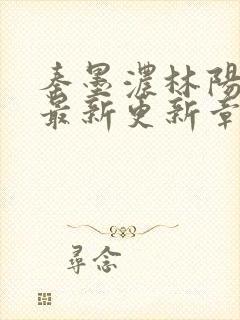 秦墨濃林陽
最新更新章
尋念